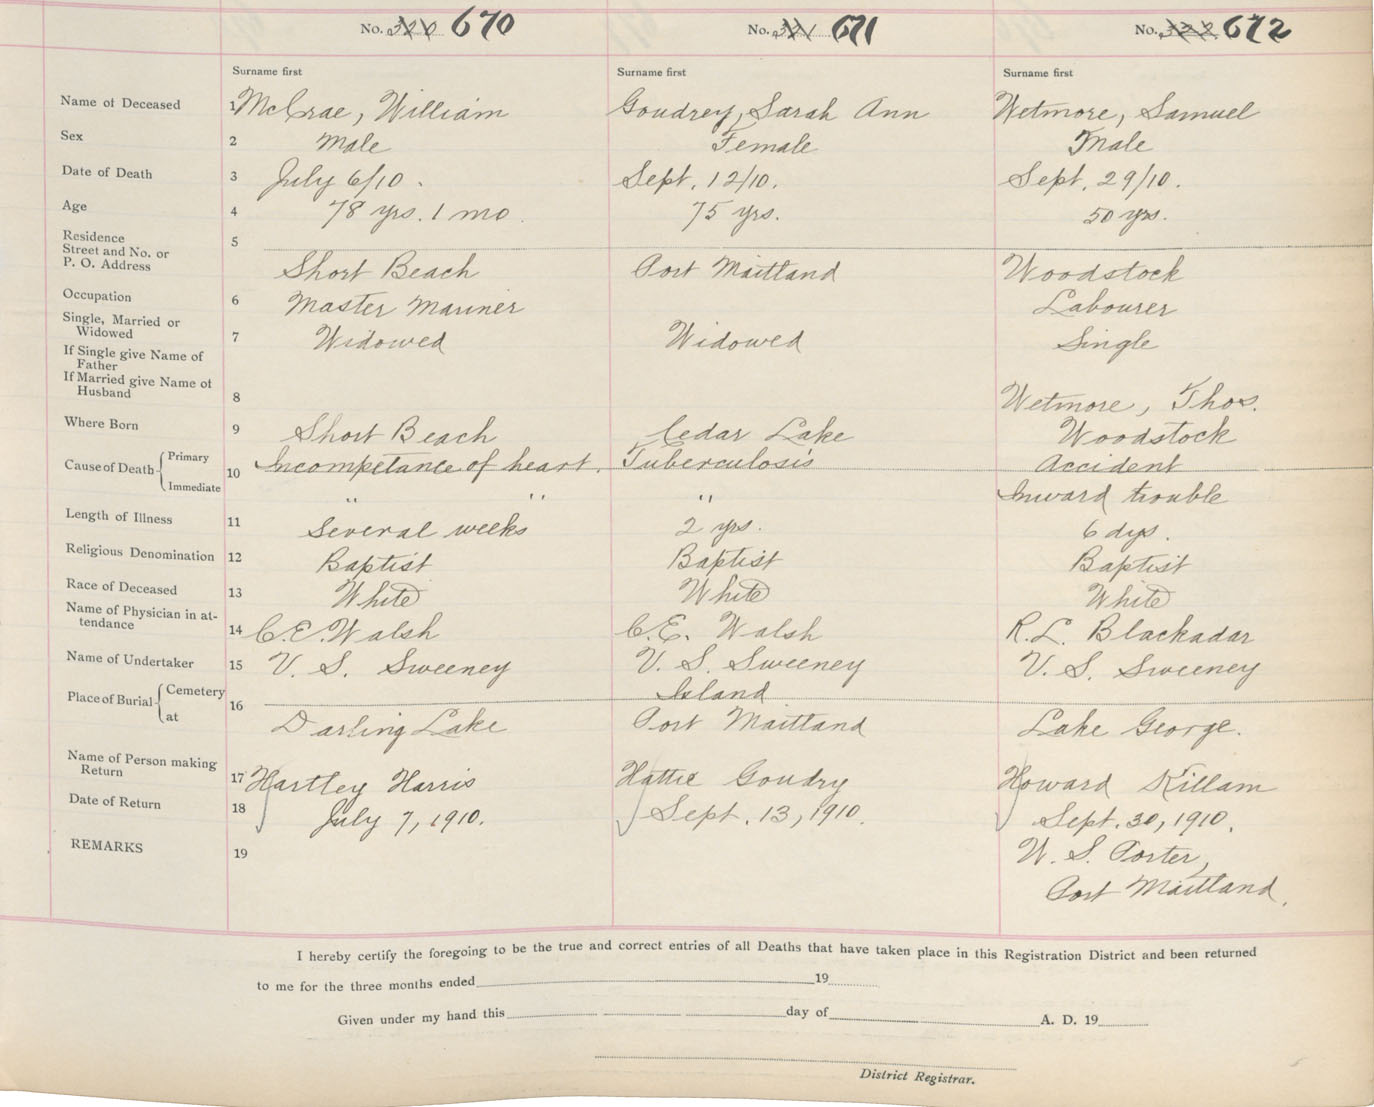 No. 320 670 No. 321 671 No. 322 672
Surname first Surname first Surname first
Name of Deceased 1 McCrae, William Goudrey, Sarah Ann Wetmore, Samuel
Sex 2 Male Female Male
Date of Death 3 July 6/10. Sept. 12/10. Sept. 29/10.
Age 4 78 yrs. 1 mo. 75 yrs. 50 yrs.
Residence 5
Street and No. or
P. O. Address Short Beach Port Maitland Woodstock
Occupation 6 Master Mariner Labourer
Single, Married or
Widowed 7 Widowed Widowed Single
If Single give Name of
Father
If Married give Name of
Husband 8 Wetmore, Thos.
Where Born 9 Short Beach Cedar Lake Woodstock
Cause of Death Primary 10 Incompetance of heart. Tuberculosis Accident
Immediate " " " Inward trouble
Length of Illness 11 Several weeks 2 yrs. 6 dys.
Religious Denomination 12 Baptist Baptist Baptist
Race of Deceased 13 White White White
Name of Physician in at-
tendance 14 C.E. Walsh C.E. Walsh R.L. Blackadar
Name of Undertaker 15 V. S. Sweeney V. S. Sweeney V. S. Sweeney
Place of Burial Cemetery 16 Island
at Darling Lake Port Maitland Lake George.
Name of Person making
Return 17 Hartley Harris Hattie Goudry Howard Killam
Date of Return 18 July 7, 1910. Sept. 13, 1910. Sept. 30, 1910.
REMARKS 19 W. S. Porter,
Port Maitland.
I hereby certify the foregoing to be the true and correct entries of all Deaths that have taken place in this Registration District and been returned
to me for the three months ended 19
Given under my hand this day of A. D. 19
District Registrar.